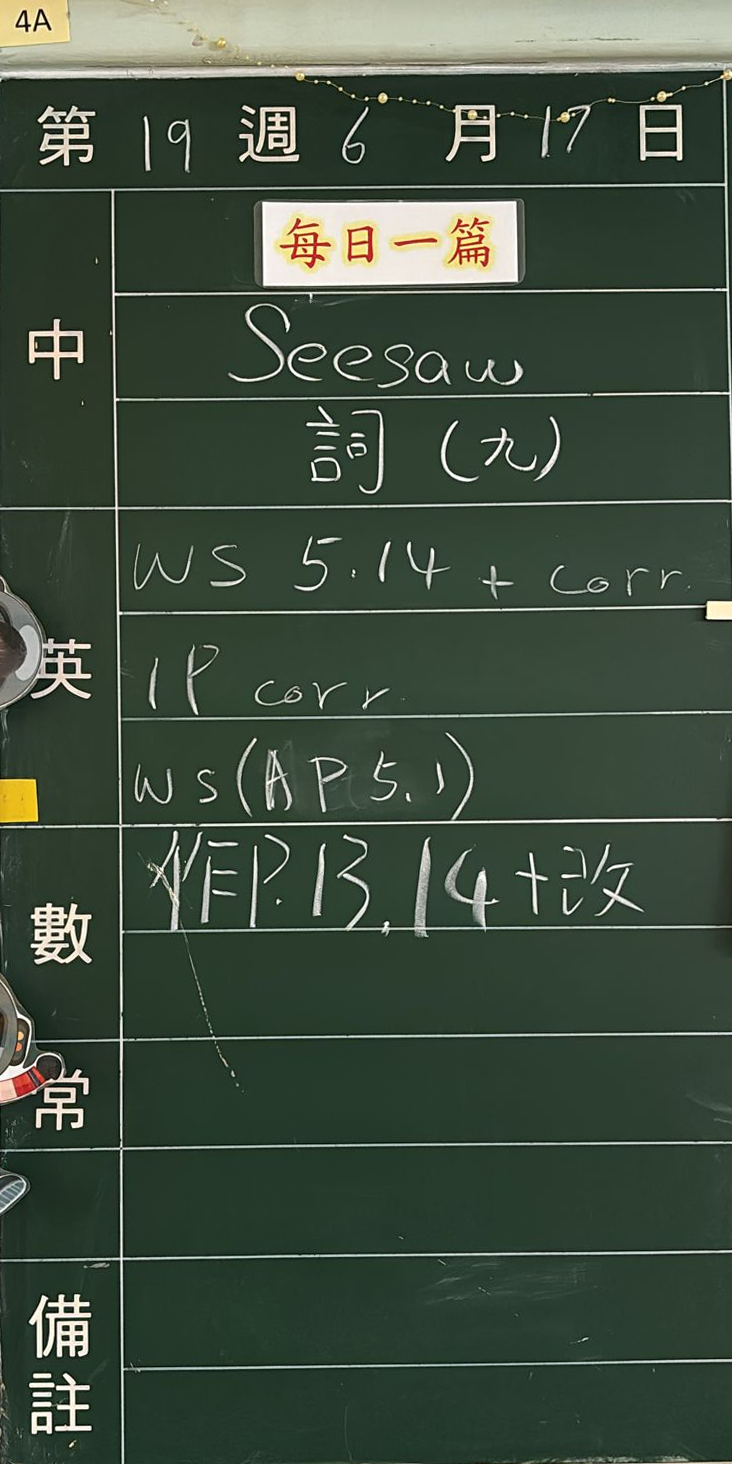 4A
第 19 週 6 月 17 日
中
每日一篇
Seesaw
詞（九）
英
WS 5.14 + corr.
IP corr.
WS (AP 5.1)
數
作P.13,14+改
常
備註